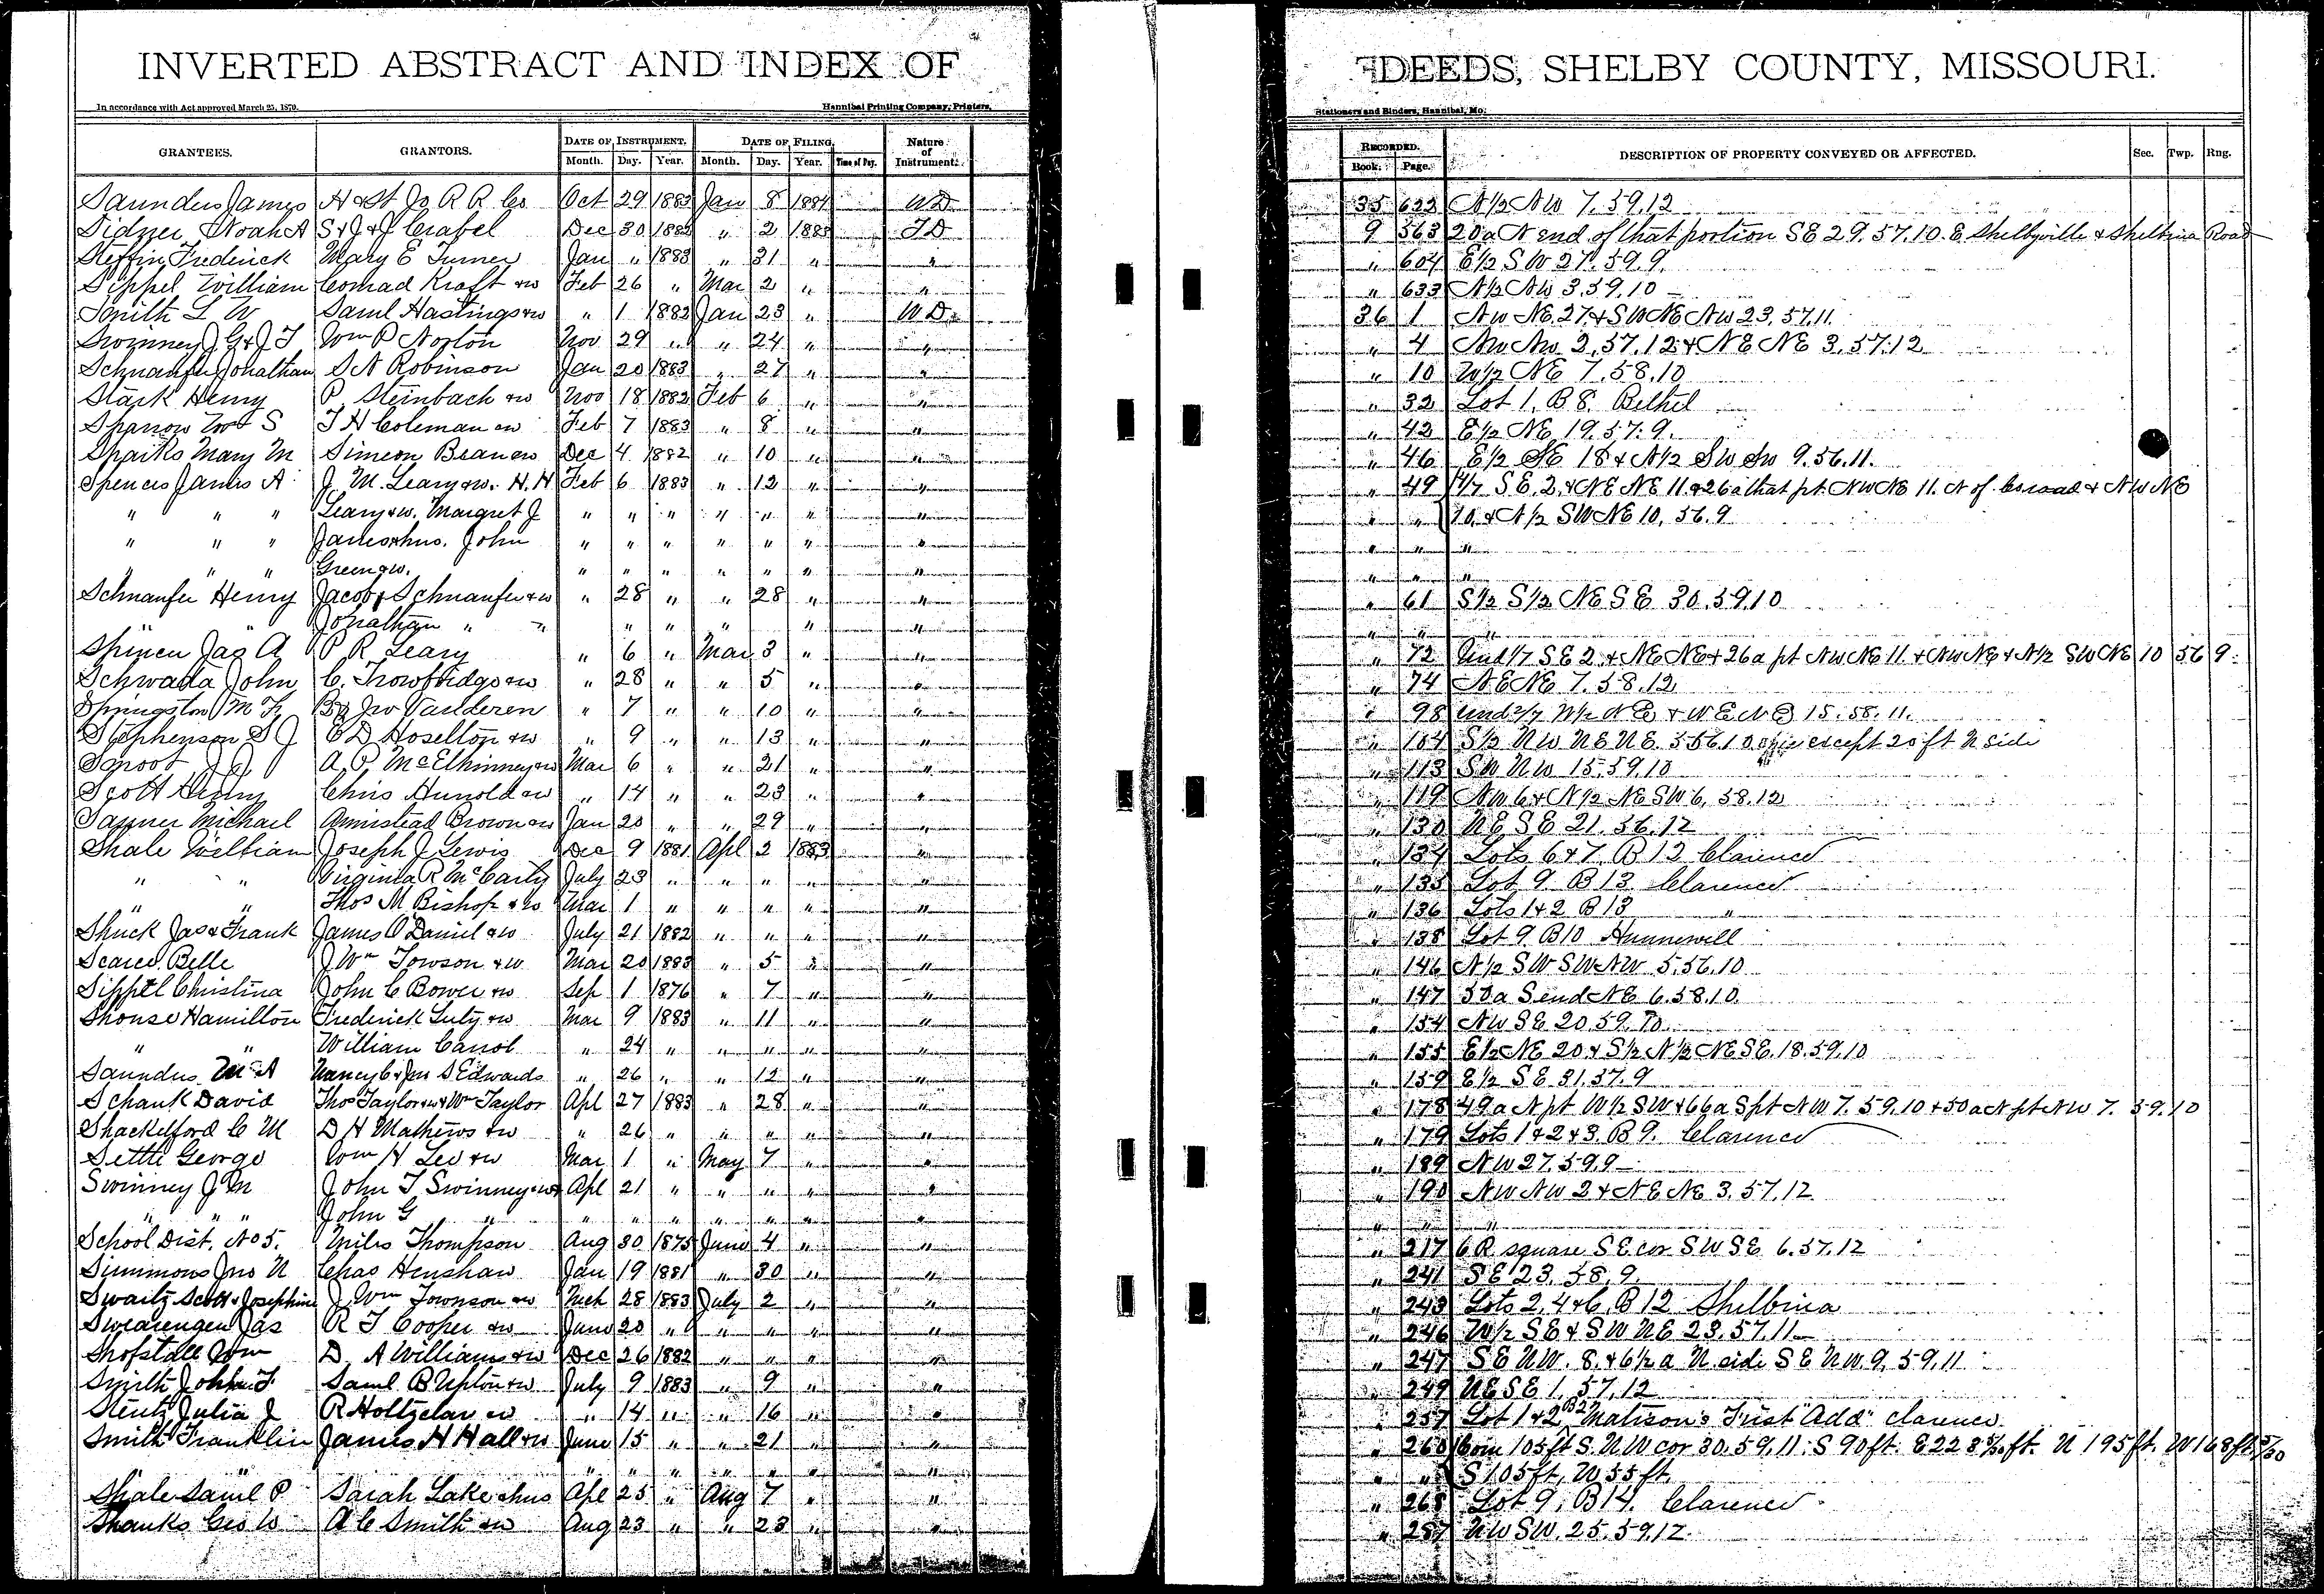 INVERTED ABSTRACT AND INDEX OF DEEDS, SHELBY COUNTY, MISSOURI.
In accordance with Act approved March 25, 1870. Hannibal Printing Company, Printers, Stationers and Binders, Hannibal, Mo.
GRANTEES. GRANTORS. DATE OF INSTRUMENT. DATE OF FILING. Nature of Instrument. RECORDED. DESCRIPTION OF PROPERTY CONVEYED OR AFFECTED. Sec. Twp. Rng.
Month. Day. Year. Month. Day. Year. Time of Day. Book. Page.
Saunders James H & St Jo R R Co Oct 29 1883 Jan 8 1884 WD 35 622 N½ NW 7.59.12
Sidner Noah A S & J & J Crabel Dec 30 1882 " 2 1883 TD 9 563 20a N end of that portion SE 29.57.10. E Shelbyville & Shelbina Road
Steffin Frederick Mary E Turner Jan " 1883 " 31 " " " 604 E½ SW 27.59.9.
Sippel William Conrad Kraft & w Feb 26 " Mar 2 " " " 633 N½ NW 3.59.10
Smith L W Saml Hastings & w " 1 1882 Jan 23 " WD 36 1 NW NE 27. & SW NE NW 23.57.11.
Swinney J G & J T Wm P Norton Nov 29 " " 24 " " " 4 NW NW 2.57.12 & NE NE 3.57.12
Schnaufer Jonathan S A Robinson Jan 20 1883 " 27 " " " 10 W½ NE 7.58.10
Stark Henry P. Steinbach & w Nov 18 1882 Feb 6 " " " 32 Lot 1. B 8. Bethel
Sparrow Wm S T H Coleman & w Feb 7 1883 " 8 " " " 42 E½ NE 19.57.9.
Sparks Mary M Simeon Bean & w Dec 4 1882 " 10 " " " 46 E½ SE 18 & N½ SW SW 9.56.11.
Spences James A J. M. Leary & w. H. H Feb 6 1883 " 12 " " " 49 4/7 SE 2. & NE NE 11. & 26a that pt. NW NE 11. N of Co road & NW NE
" " " Leary & w. Margret J " " " " " " " " " 10. & N½ SW NE 10, 56.9
" " " James & hus. John " " " " " " " " " "
" " " Green & w. " " " " " " " " " "
Schnaufer Henry Jacob Schnaufer & w " 28 " " 28 " " " 61 S½ S½ NE SE 30.59.10
" " Jonathan " " " " " " " " " " "
Spincu Jas A P R Leary " 6 " Mar 3 " " " 72 Und 1/7 SE 2. & NE NE & 26a pt NW NE 11. & NW NE & N½ SW NE 10 56 9.
Schwada John C. Trowbridge & w " 28 " " 5 " " " 74 NE NE 7.58.12
Springston M F By Jno Vanderen " 7 " " 10 " " " 98 Und 2/7 W½ NE & W E NE 15.58.11.
Stephenson S J C D Hoselton & w " 9 " " 13 " " " 104 S½ NW NE NE. 5 56.10 except 20 ft N side
Smoot J A. P. McElhinney & w Mar 6 " " 21 " " " 113 SW NW 15.59.10
Scott Henry Chris Hunold & w " 14 " " 23 " " " 119 NW 6 & N½ NE SW 6, 58.12
Sanner Michael Armistead Brown & w Jan 20 " " 29 " " " 130 NE SE 21.56.12
Shale William Joseph J Lewis Dec 9 1881 Apl 2 1883 " " 134 Lots 6 & 7. B 12 Clarence
" " Virginia R McCarty July 23 " " " " " " 135 Lot 9 B 13 Clarence
" " Thos M Bishop & w Mar 1 " " " " " " 136 Lots 1 & 2 B 13 "
Shuck Jas & Frank James O'Daniel & w July 21 1882 " " " " " 138 Lot 9 B 10 Hunnewell
Scarce Belle J Wm Towson & w Mar 20 1883 " 5 " " " 146 N½ SW SW NW 5.56.10
Sippel Christina John C Bower & w Sep 1 1876 " 7 " " " 147 50a S end NE 6.58.10.
Shouse Hamilton Frederick Luty & w Mar 9 1883 " 11 " " " 154 NW SE 20.59.10
" " William Carrol " 24 " " " " " " 155 E½ NE 20 & S½ N½ NE SE. 18.59.10
Saunders Wm A Nancy C & Jno S Edwards " 26 " " 12 " " " 159 E½ SE 31.57.9
Schank David Thos Taylor & w & Wm Taylor Apl 27 1883 " 28 " " " 178 49a N pt W½ SW & 66a S pt NW 7. 59.10 & 50a N pt NW 7. 59.10
Shackelford C M D H Mathews & w " 26 " " " " " " 179 Lots 1 & 2 & 3. B 9. Clarence
Settle George Wm H Lee & w Mar 1 " May 7 " " " 189 NW 27.59.9
Swinney J M John T Swinney & w Apl 21 " " " " " " 190 NW NW 2 & NE NE 3.57.12
" " " John G " " " " " " " " " " "
School Dist. No 5. Miles Thompson Aug 30 1875 June 4 " " " 217 6 R square SE cor SW SE 6.57.12
Simmons Jno N Chas Henshaw Jan 19 1881 " 30 " " " 241 SE 23.58.9.
Swartz Scott & Josephine J. Wm Townson & w Mch 28 1883 July 2 " " " 243 Lots 2, 4 & 6. B 12 Shelbina
Swearengen Jas R T Cooper & w June 20 " " " " " " 246 W½ SE & SW NE 23.57.11
Shofstall Wm D. A Williams & w Dec 26 1882 " " " " " 247 SE NW. 8. & 6½ a N. side SE NW. 9.59.11
Smith John T Saml B Upton & w July 9 1883 " 9 " " " 249 NE SE 1.57.12
Stentz Julia J R Holtzclaw & w " 14 " " 16 " " " 257 Lot 1 & 2 B 2 Matison's First "Add" Clarence.
Smith Franklin James H Hall & w June 15 " " 21 " " " 260 Com 105 ft S. NW cor 30.59.11: S 90 ft. E 228 5/10 ft. N 195 ft. W 168 ft 5/30
" " " " " " " " " " S 105 ft, W 55 ft.
Shale Saml P Sarah Lake & hus Apl 25 " Aug 7 " " " 268 Lot 9, B 14. Clarence
Shanks Geo W A C Smith & w Aug 23 " " 23 " " " 287 NW SW. 25.59.12.